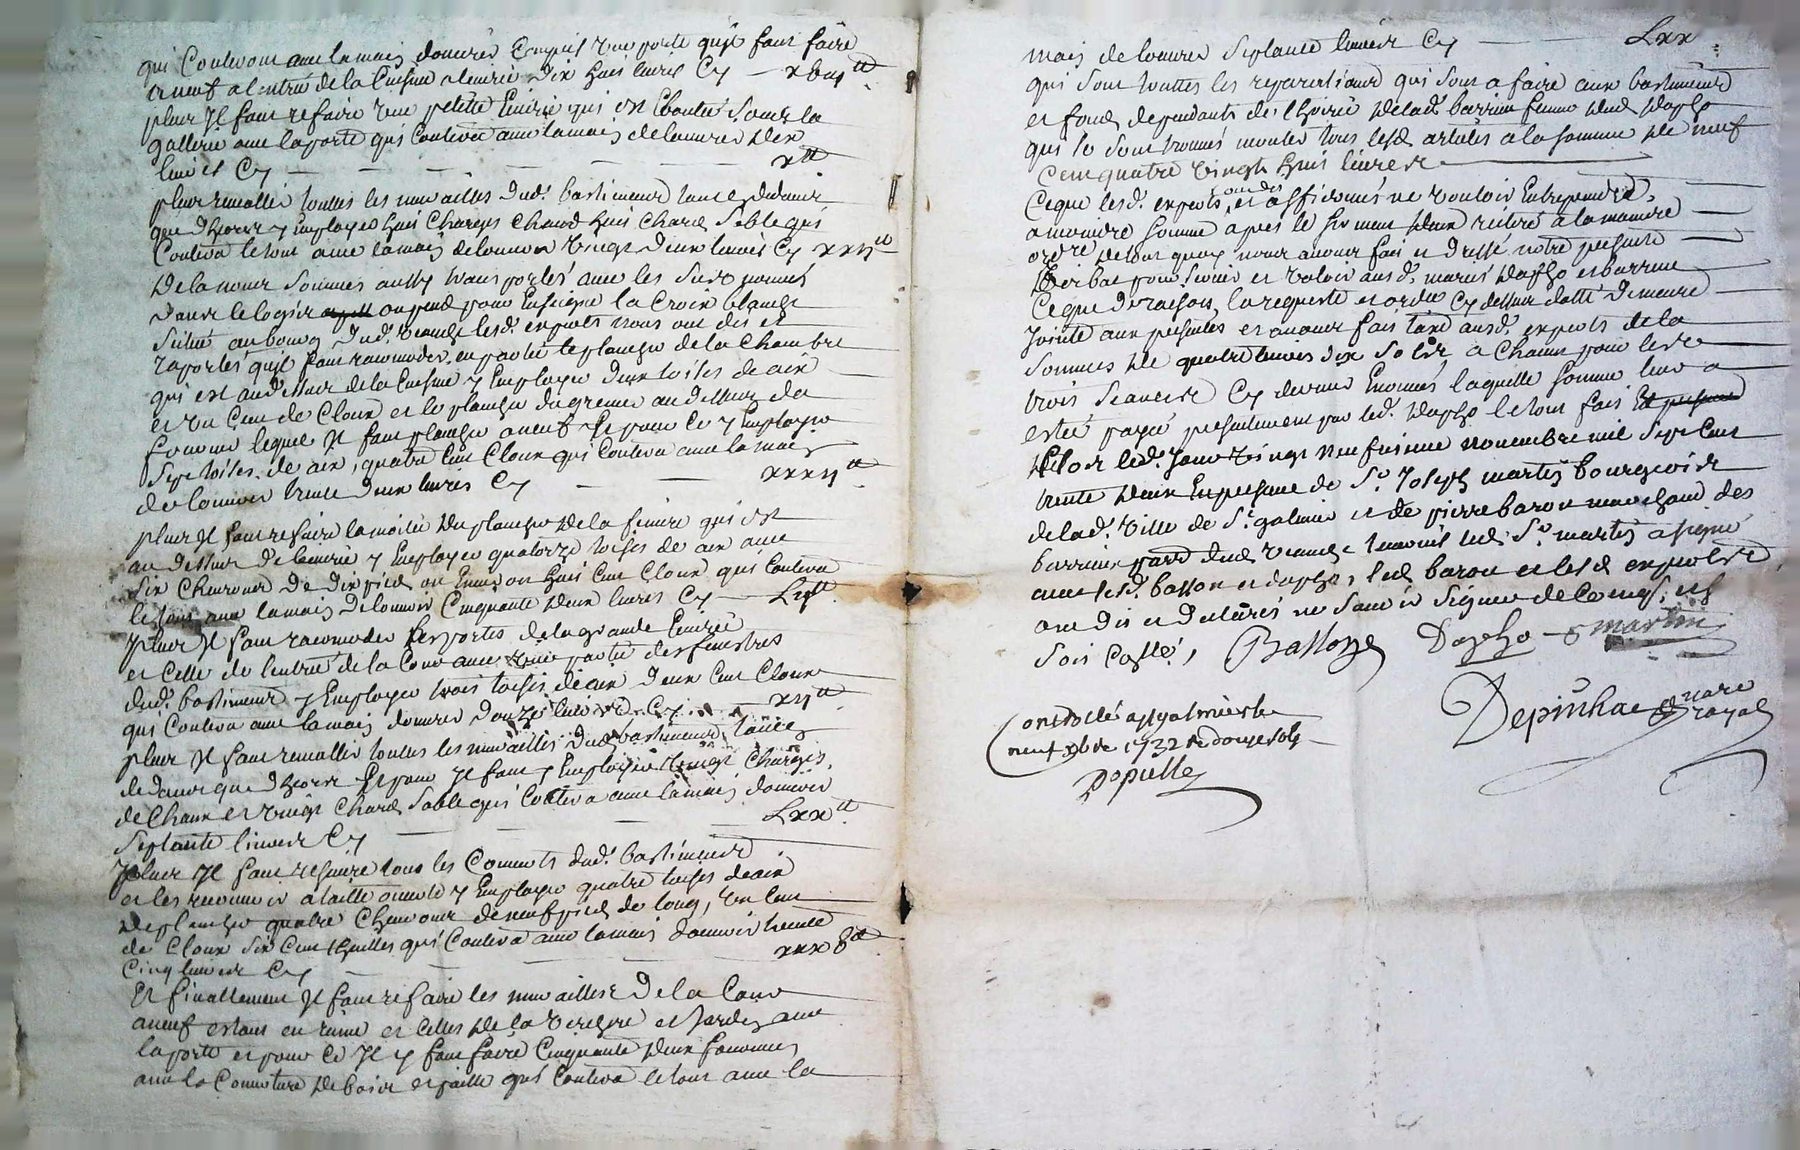 qui Coutera avec la main douvrier Compris une porte quil faut faire
a neuf a lentrée de la Cuisine a lecurie dix huit livres Cy — xviii tt
plus Il faut refaire une petite Ecurie qui est sous la
gallerie avec la porte qui Coutera avec la main de louvrier dix
livres Cy — x tt
plus remallier toutes les murailles dud. bastiment tant dedans
que dhors y Employer huit Charges Chaud huit Chard Sable qui
Coutera le tout avec la main de louvrier vingt deux livres Cy xxii tt
De la nous Sommes aussy transportés avec les Susnommés
dans le logis ou pend pour Enseigne la Croix blanche
Situé au bourg dud. lesd. experts nous ont dit et
raportés quil faut racomoder en partie le plancher de la Chambre
qui est au dessus de la Cuisine y Employer deux toises de aix
et un Cent de Cloux et le plancher du grenier au dessus de
lequel Il faut plancher a neuf Et pour Ce y Employer
Sept toises de aix, quatre Cent Cloux qui Coutera avec la main
de louvrier trente deux livres Cy — xxxii tt
plus Il faut refaire la moitié du plancher de la feniere qui est
au dessus de lecurie y Employer quatorze toises de aix avec
Six Chevrons de dix pied ou Environ huit Cent Cloux qui Coutera
le tout avec la main de louvrier Cinquante deux livres Cy — Lii tt
plus Il faut racomoder les portes de la grande Ecurie
et Celle de lentrée de la Cour avec une partie des fenestres
dud. bastiment y Employer trois toises de aix deux Cent Cloux
qui Coutera avec la main douvrier douze livres Cy — xii tt
plus Il faut remallier toutes les murailles dud. bastiment tant
dedans que dhors Et pour Il faut y Employer vingt Charges
de Chaux et vingt Chard Sable qui Coutera avec la main douvrier
Septante livres Cy — Lxx tt
plus Il faut refaire tous les Couverts dud. bastiment
et les recouvrir a taille ouverte y Employer quatre toises de aix
de plancher quatre Chevrons de neuf pied de long, un Cent
de Cloux Six Cent thuilles qui Coutera avec la main douvrier trente
Cinq livres Cy — xxxv tt
Et finallement Il faut refaire les murailles de la Cour
a neuf estant en ruine et Celles de la Verchere et Jardin avec
la porte et pour Ce Il y faut faire Cinquante deux
avec la Couverture de bois et paille qui Coutera le tout avec la
main de louvrier Septante livres Cy — Lxx
qui Sont touttes les reparations qui Sont a faire aux bastiments
et fonds dependants de lhoirie de lad. barrieu femme dud. dapho
qui Se Sont trouvés monter tous lesd. articles a la Somme de neuf
Cent quatre vingt huit livres
Ce que lesd. experts ont dit et affirmés ne vouloir Entreprendre
a moindre Somme apres le Serment deux reiteré a la maniere
ordre de tout quoy nous avons fait et dressé notre present
Verbal pour Servir et valoir ausd. mariés dapho et barrieu
Ce que de raison, la requeste et ordce Cy dessus datté demeure
Jointe aux presentes et avons fait taxe ausd. experts de la
Somme de quatre livres dix Sols a Chacun pour leur
trois Seances Cy devant Enoncés laquelle Somme leur a
esté payée presentement par led. dapho le tout fait
Et Clos led. Jour vingt neufvieme novembre mil Sept Cent
trente deux En presence de Sr. Joseph martin bourgeois
de lad. ville de St. galmier et de pierre baron marchand des
barrieux parre dud. temoins led. Sr. martin a signé
avec led. balloze et dapho, led. baron et lesd. experts
ont dit et declarés ne Savoir Signer de Ce enqs. et
Soit Collé, Balloze Dapho Martin
Controllé a St galmier le
neuf xbre 1732 Re douze sols
Depinhac nore royal